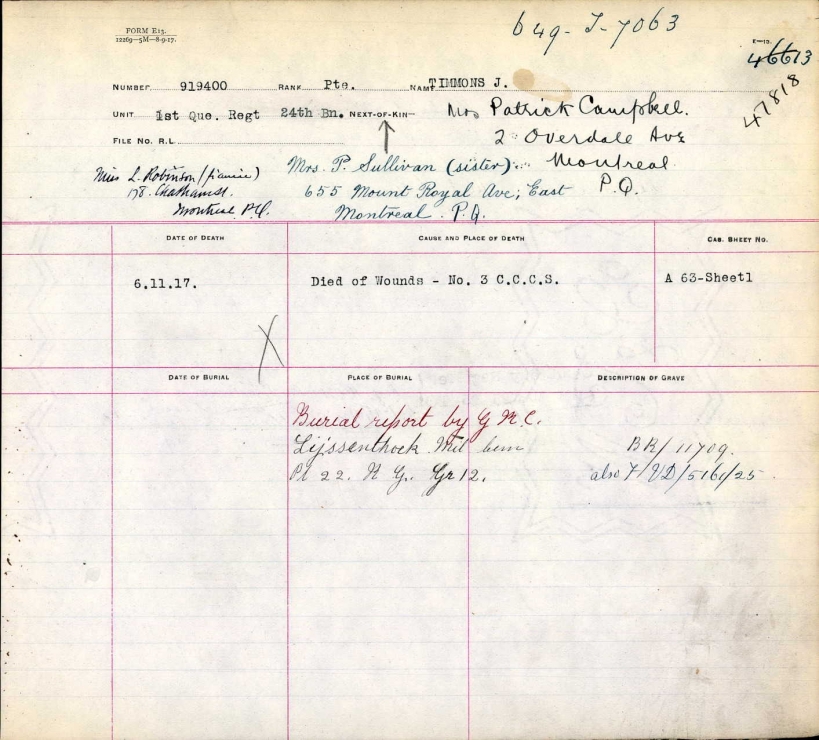 FORM E13.
12269—5M—8-9-17.
649-T-7063
E—13.
46613
47818
NUMBER 919400 RANK Pte. NAME TIMMONS J.
UNIT 1st Que. Regt 24th Bn. NEXT-OF-KIN— Mrs Patrick Campbell.
2 Overdale Ave
Montreal
P.Q.
FILE NO. R.L.
Mrs. P. Sullivan (sister)
655 Mount Royal Ave; East
Montreal. P.Q.
Miss L. Robinson (fiancee)
178. Chatham St.
Montreal P.Q.
DATE OF DEATH CAUSE AND PLACE OF DEATH CAS. SHEET NO.
6.11.17. Died of Wounds - No. 3 C.C.C.S. A 63-Sheet1
DATE OF BURIAL PLACE OF BURIAL DESCRIPTION OF GRAVE
Burial report by G.R.C.
Lijssenthoek Mil Cem BR/11709.
Pl 22. R G. Gr 12. also 7/VD/5161/25